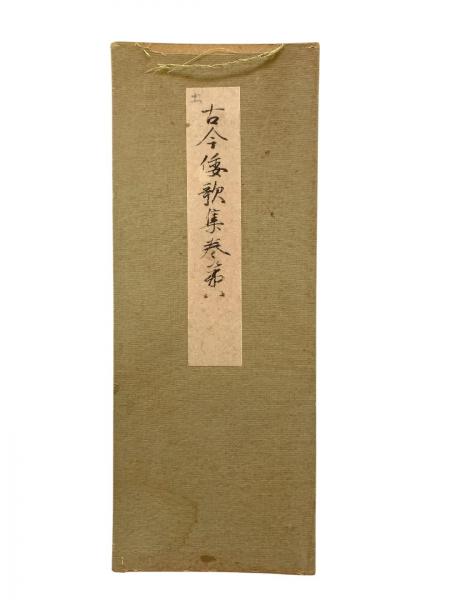 古今倭歌集巻第八